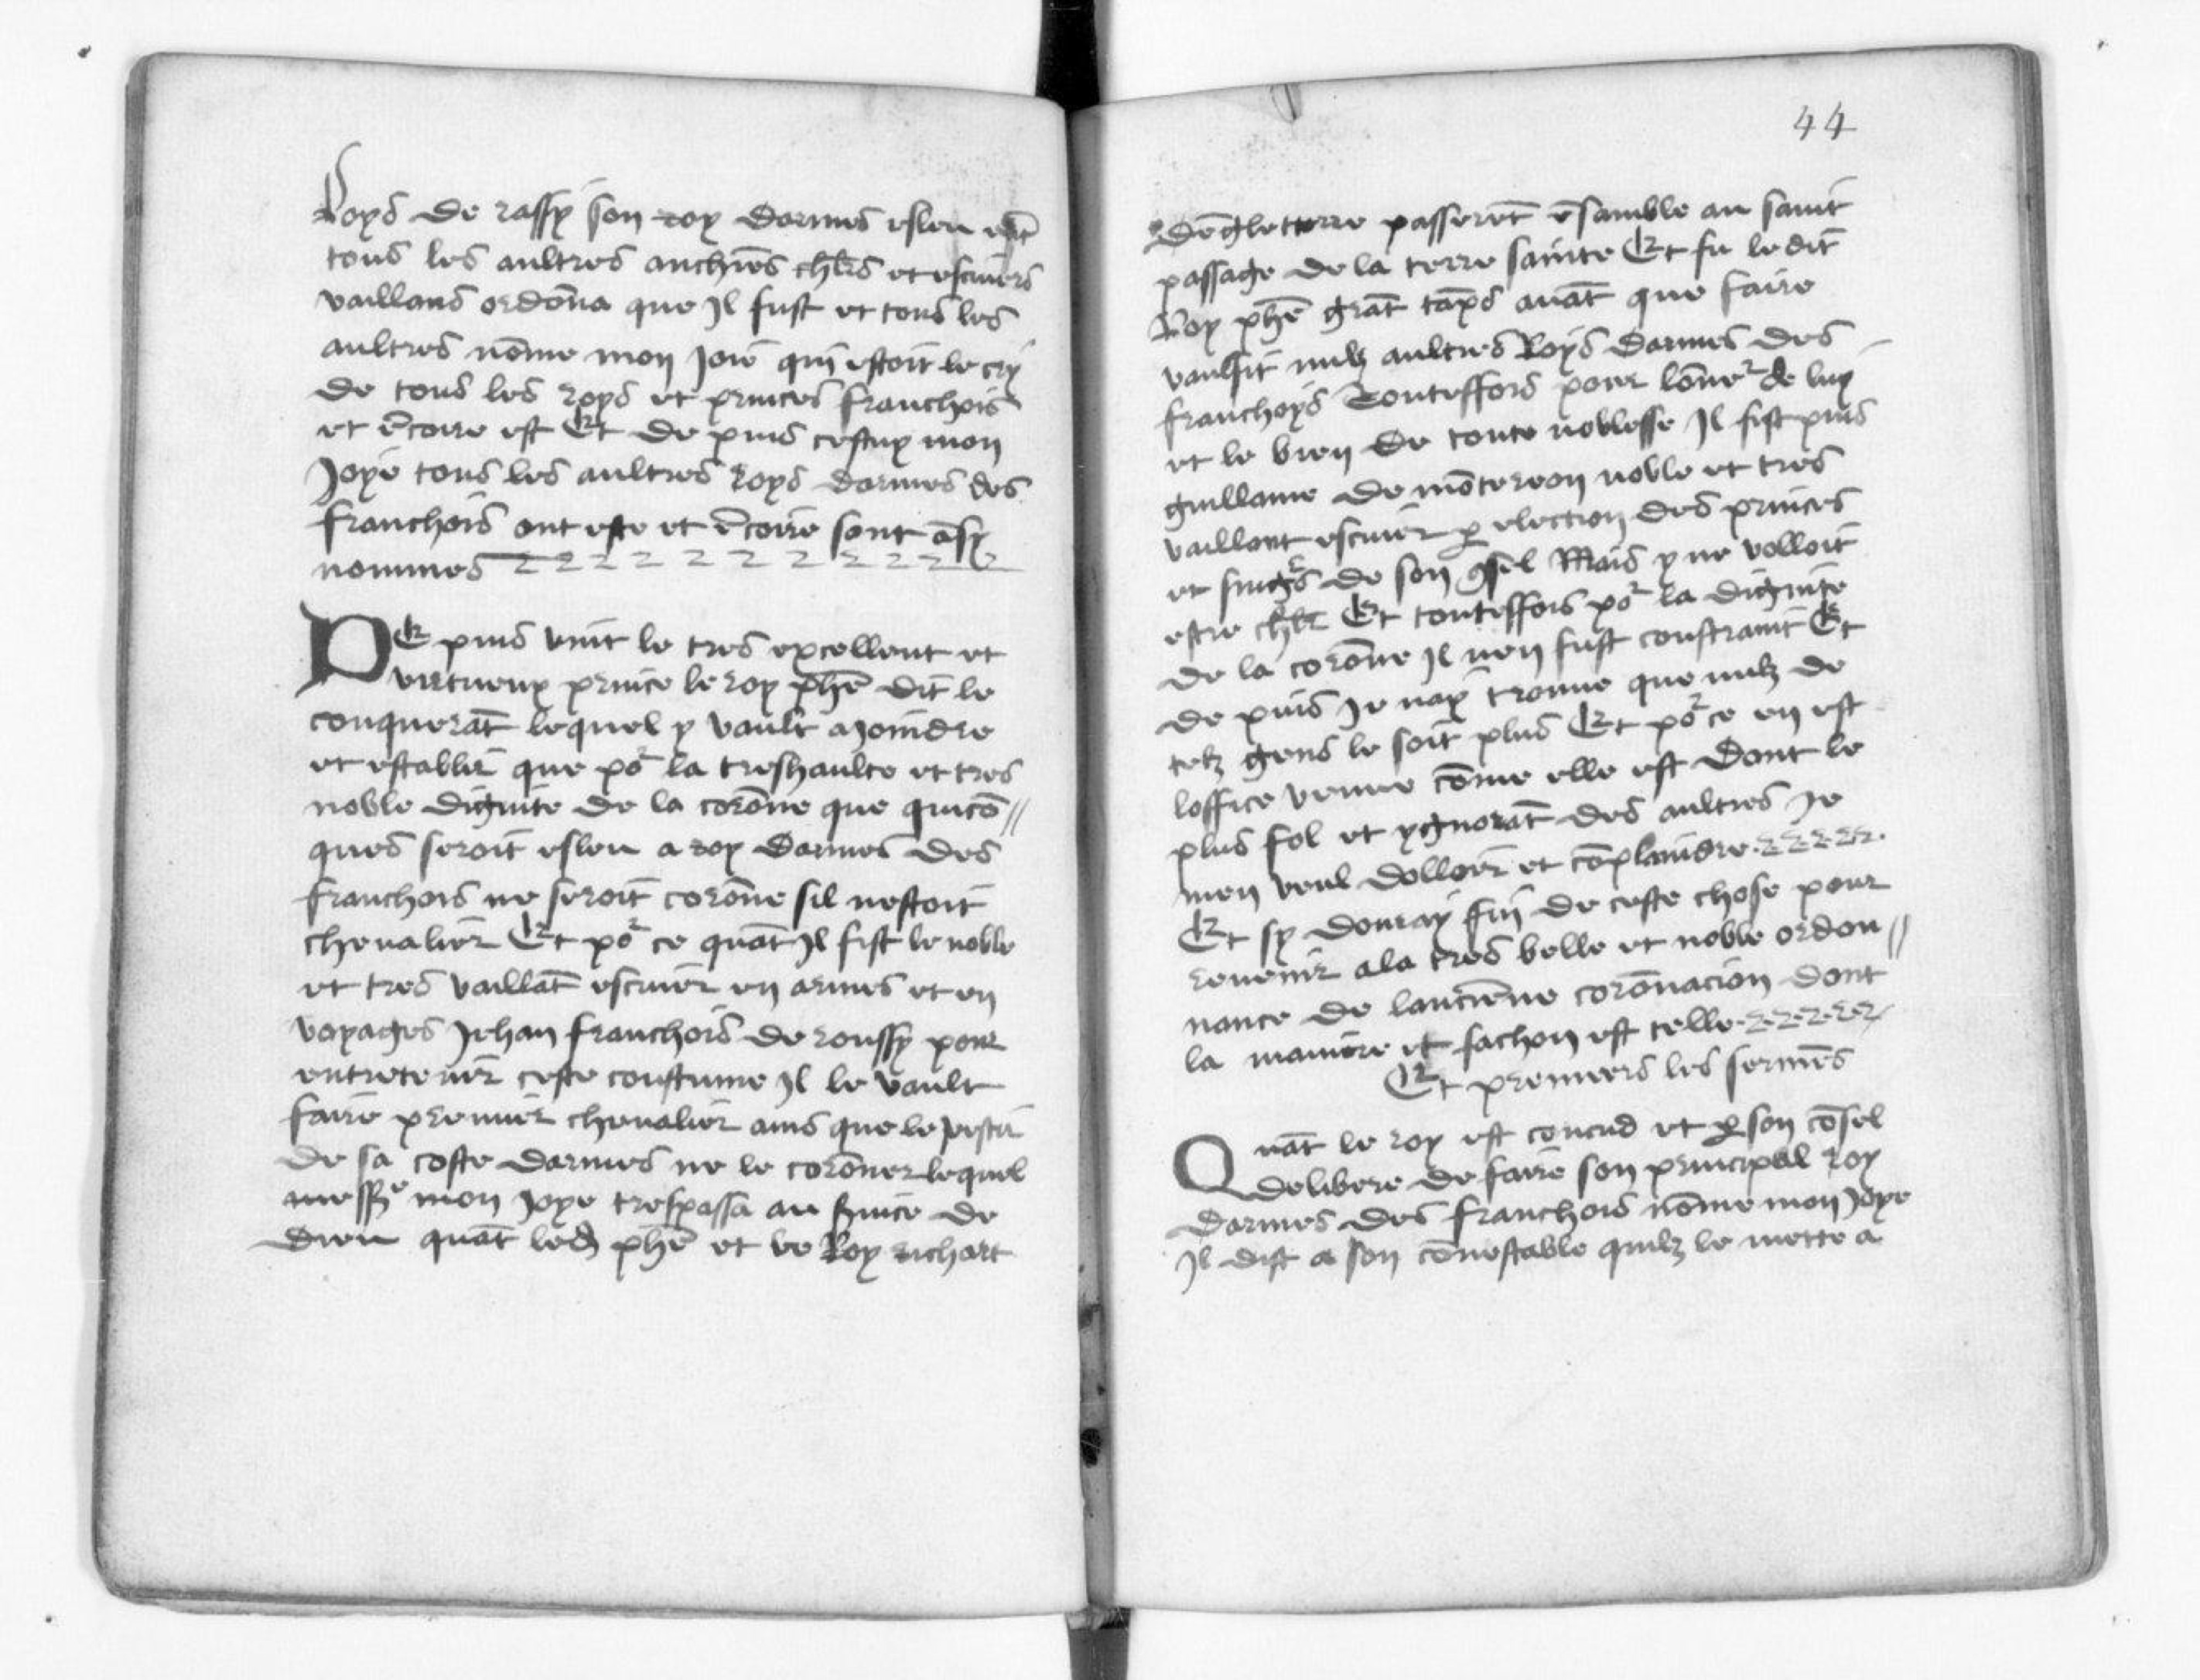 Roys de rassy son roy darmes esleu ent̃
tous les aultres anchiẽs chl̃rs et escuiers
vaillans ordõna que Il fust et tous les
aultres nõme mon Joie qui estoit le cry
de tous les roys et princes franchois
et ẽcore est Et de puis cestuy mon
Joye tous les aultres roys darmes des
franchois ont este et ẽcoire sont ãsy
nommes
DE puis vint le tres excellent et
virtueux prince le roy phẽ dit le
conquerãt lequel y vault ajoindre
et establir que poʳ la treshaulte et tres
noble dignite de la corõne que quicõ//
ques seroit esleu a roy darmes des
franchois ne seroit corõne sil nestoit
chevalier Et poʳ ce quãt Il fist le noble
et tres vaillãt escuier en armes et en
voyages Jehan franchois de roussy pour
entretenir ceste coustume Il le vault
faire premier chevalier ains que le vestir
de sa coste darmes ne le corõner lequel
messʳᵉ mon Joye trespassa au service de
dieu quãt led phẽ et le Roy richart
44
dẽgleterre passerẽt ẽsamble au saint
passage de la terre sainte Et fu ledit
Roy phẽ grãt tãps avãt que faire
vaulsit nulz aultres Roys darmes des
franchoys Toutesffois pour lõneʳ de luy
et le bien de toute noblesse Il fist puis
guillame de mõtereon noble et tres
vaillant escuier p̱ election des princes
et singʳs de son ꝯsel Mais y ne volloit
estre chl̃r Et toutesffois poʳ la dignite
de la corõne Il nen fust constraint Et
de puis Je nay trouve que nulz de
telz gens le soit plus Et poʳ ce en est
loffice venue cõme elle est Dont le
plus fol et ygnorãt des aultres Je
men veul dolloer et cõplaindre
Et sy donray fin de ceste chose pour
revenir ala tres belle et noble ordon//
nance de lanciẽne corõnacion dont
la maniere et fachon est telle
Et premiers les sermẽs
Quãt le roy est concud et p̱ son cõsel
delibere de faire son principal roy
darmes des franchois nõme mon Joye
Il dist a son cõnestable quilz le mette a